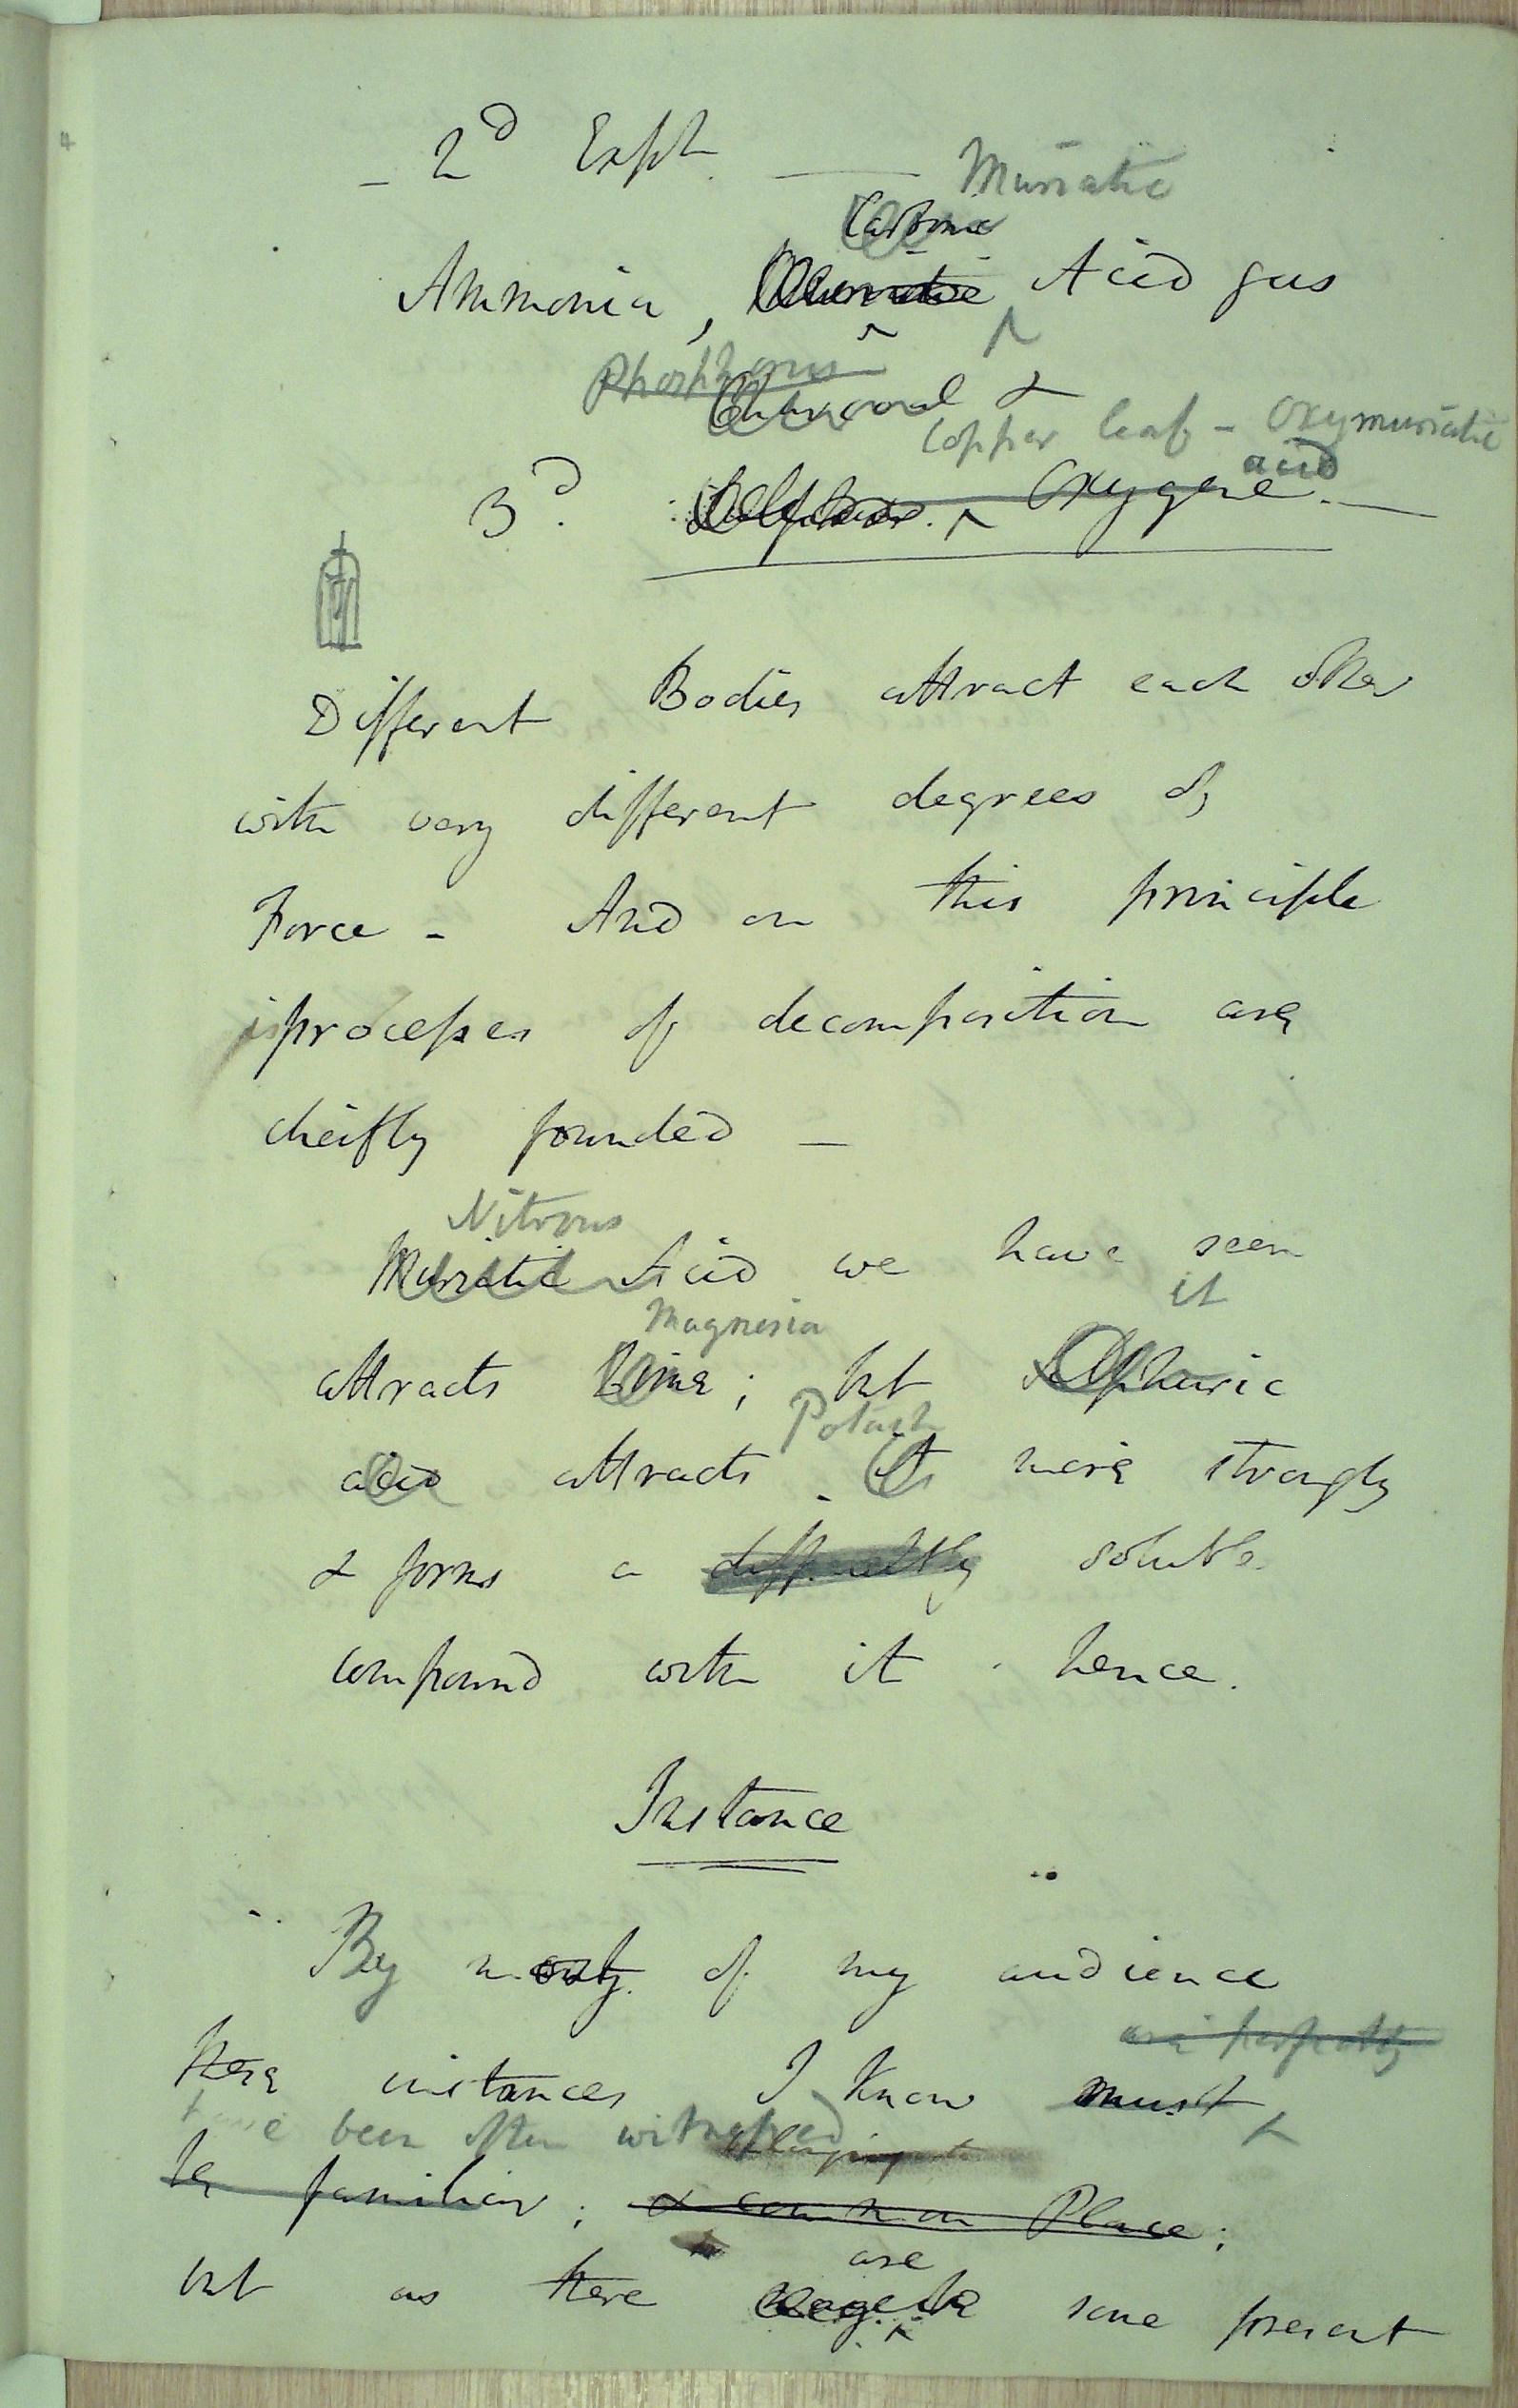 4
- 2d Expt. — Muriatic
Carbonic
Ammonia, Muriatic Acid gas
Phosphorus
Charcoal &
Copper leaf - Oxymuriatic
acid
3d. Sulphur. Oxygene. —
Different Bodies attract each other
with very different degrees of
Force - And on this principle
processes of decomposition are
cheifly founded —
Nitrous
Muriatic Acid we have seen
Magnesia it
attracts Lime; but Sulphuric
Potash
acid attracts it more strongly
& forms a difficultly soluble
compound with it. hence.
Instance
By most of my audience
are perfectly
these instances I know must
have been often witnessed
be familiar; & common Place;
are
but as there may be some present